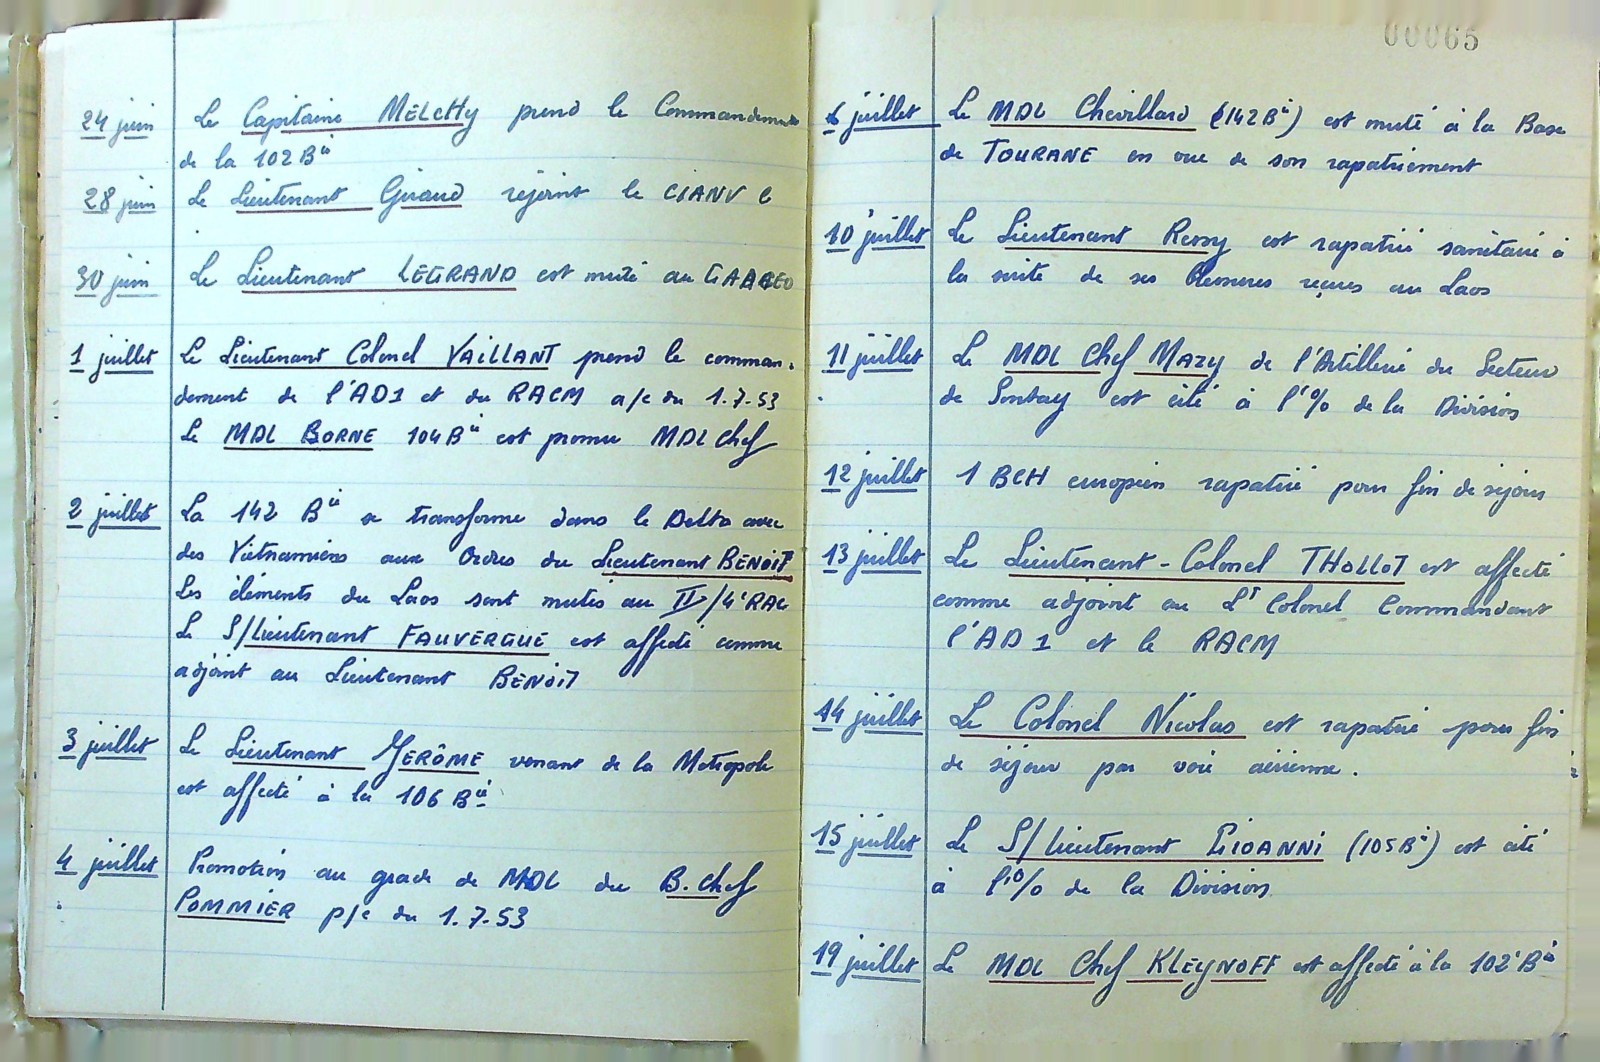 24 juin Le Capitaine MELCHY prend le Commandement
de la 102 Bie
28 juin Le Lieutenant Giraud rejoint le CIANV
30 juin Le Lieutenant LEGRAND est muté au
1 juillet Le Lieutenant Colonel VAILLANT prend le comman-
dement de l'AD1 et du RACM a/c du 1.7.53
Le MDL BORNE 104 Bie est promu MDL Chef
2 juillet La 142 Bie se transforme dans le Delta avec
des Vietnamiens aux Ordres du Lieutenant BENOIT
Les éléments du Laos sont mutés au II/4e RAC
Le S/Lieutenant FAUVERGUE est affecté comme
adjoint au Lieutenant BENOIT
3 juillet Le Lieutenant JERÔME venant de la Métropole
est affecté à la 106 Bie
4 juillet Promotion au grade de MDL du B. Chef
POMMIER p/c du 1.7.53
00065
6 juillet Le MDL Chevillard (142 Bie) est muté à la Base
de TOURANE en vue de son rapatriement
10 juillet Le Lieutenant Remy est rapatrié sanitaire à
la suite de ses blessures reçues au Laos
11 juillet Le MDL Chef MAZY de l'Artillerie du Secteur
de Sontay est cité à l'% de la Division
12 juillet 1 BCH européen rapatrié pour fin de séjour
13 juillet Le Lieutenant-Colonel THOLLOT est affecté
comme adjoint au Lt Colonel Commandant
l'AD 1 et le RACM
14 juillet Le Colonel Nicolas est rapatrié pour fin
de séjour par voie aérienne.
15 juillet Le S/Lieutenant GIOANNI (105 Bie) est cité
à l'% de la Division
19 juillet Le MDL Chef KLEYNOFF est affecté à la 102e Bie